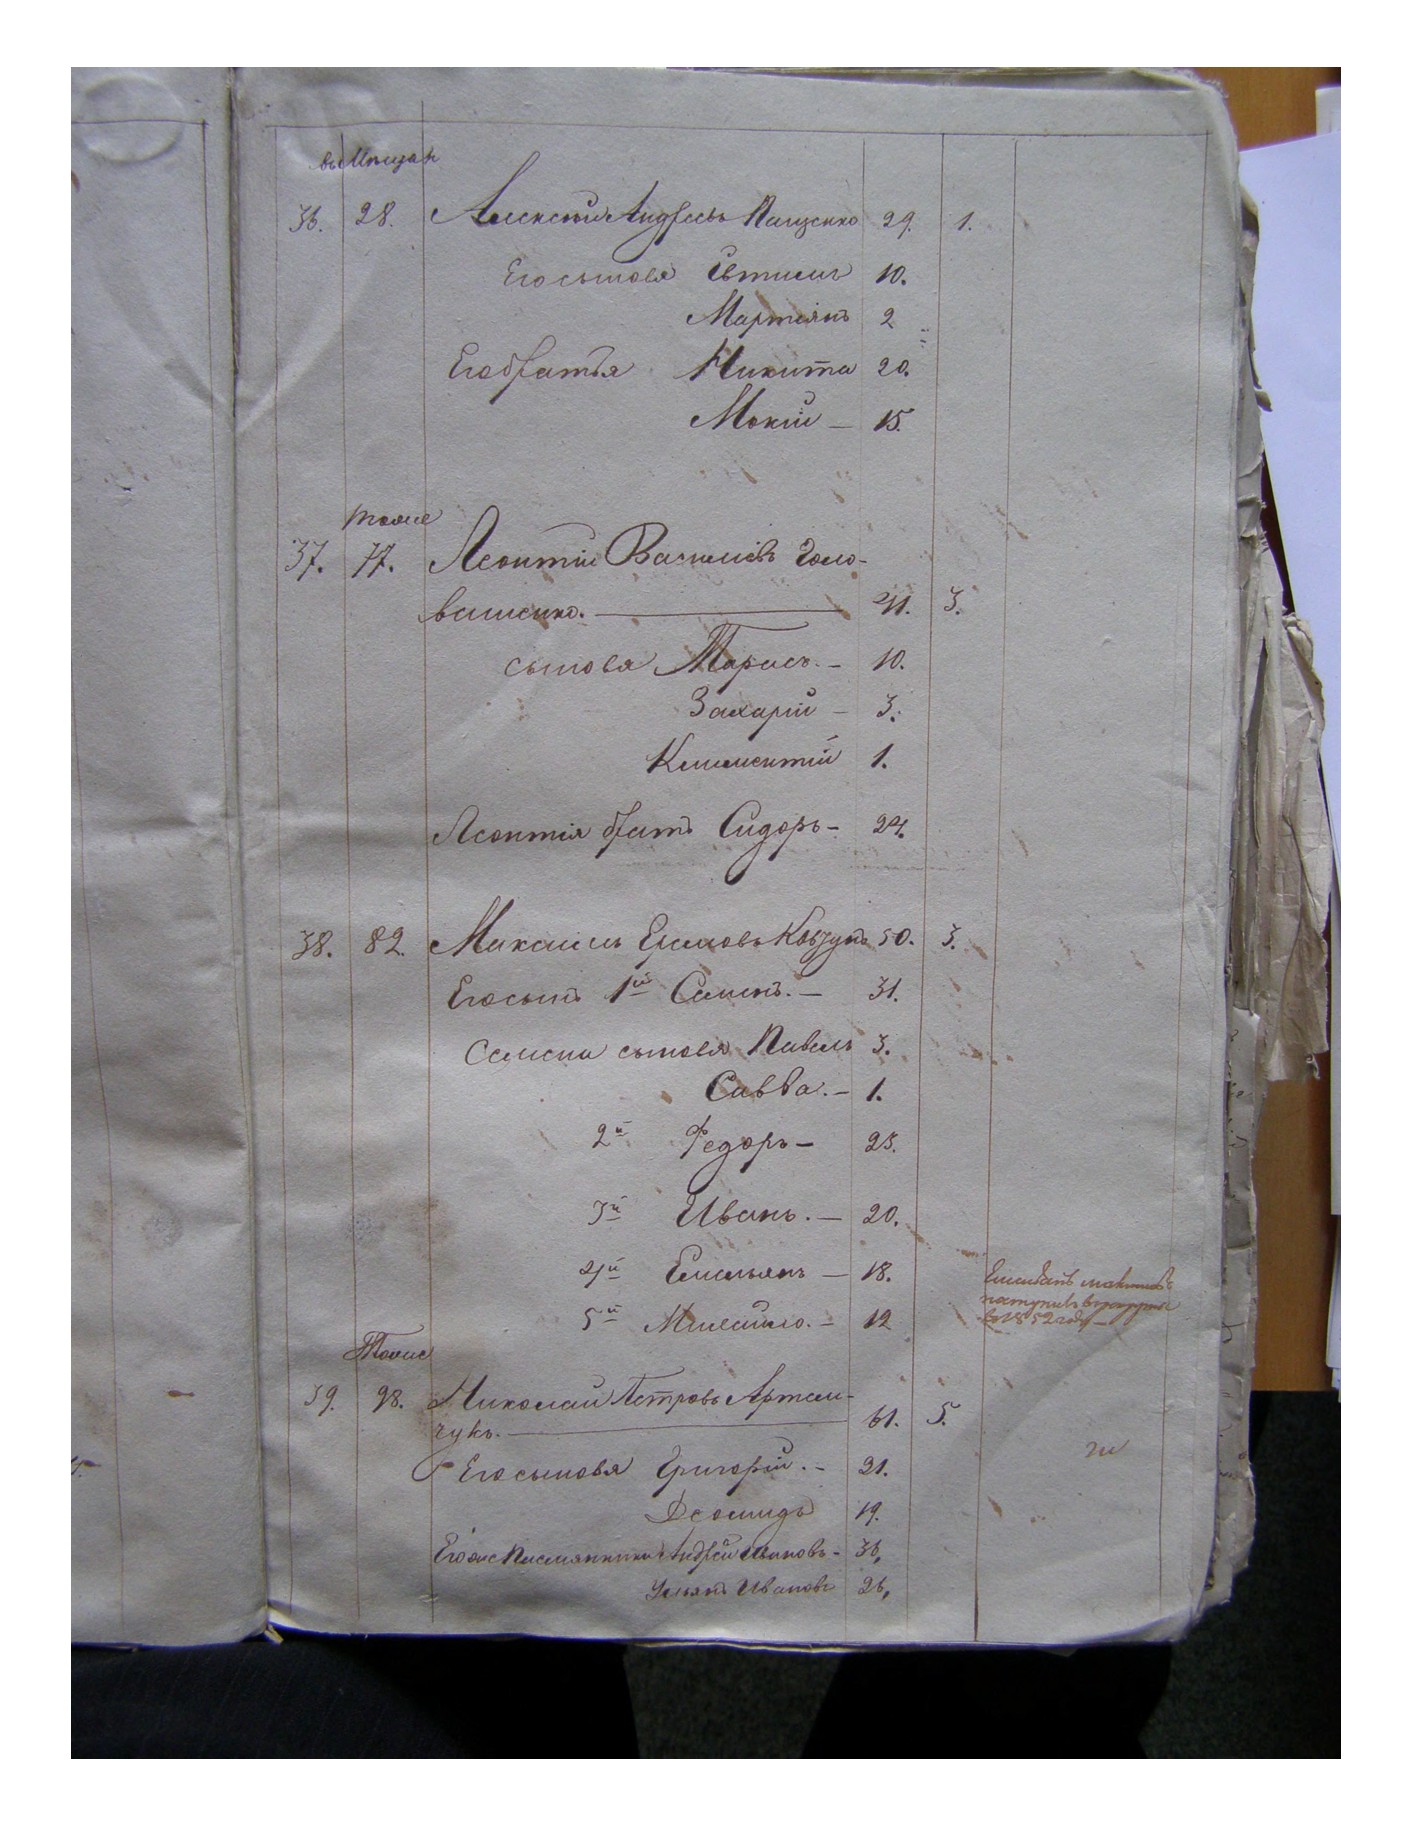 въ Мѣщан
36. 28. Алексѣй Андреевъ Пащенко 29. 1.
Его сыновя Евтихій 10.
Мартіянъ 2
Его братья Никита 20.
Мокій — 15.
тоже
37. 77. Леонтій Васильевъ Голо-
ващенко. — 41. 3.
сыновя Тарасъ. — 10.
Захарій — 3.
Климентій 1.
Леонтія братъ Сидоръ — 24.
38. 82. Максимъ Ермовъ Ковзунъ 50. 3.
Его сынъ 1й Семенъ. — 31.
Семена сыновя Павелъ 3.
Савва. — 1.
2й Федоръ — 23.
3й Иванъ. — 20.
4й Емельянъ — 18.
Емельянъ Максимовъ
поступилъ в рекруты
в 1852 году —
5й Михайло. — 12
Тоже
39. 98. Николай Петровъ Артем-
чукъ. — 61. 5.
Его сыновя Григорій. — 21.
Деомидъ 19.
Его же Племянники Андрей Ивановъ — 36,
Ульянъ Ивановъ 26,